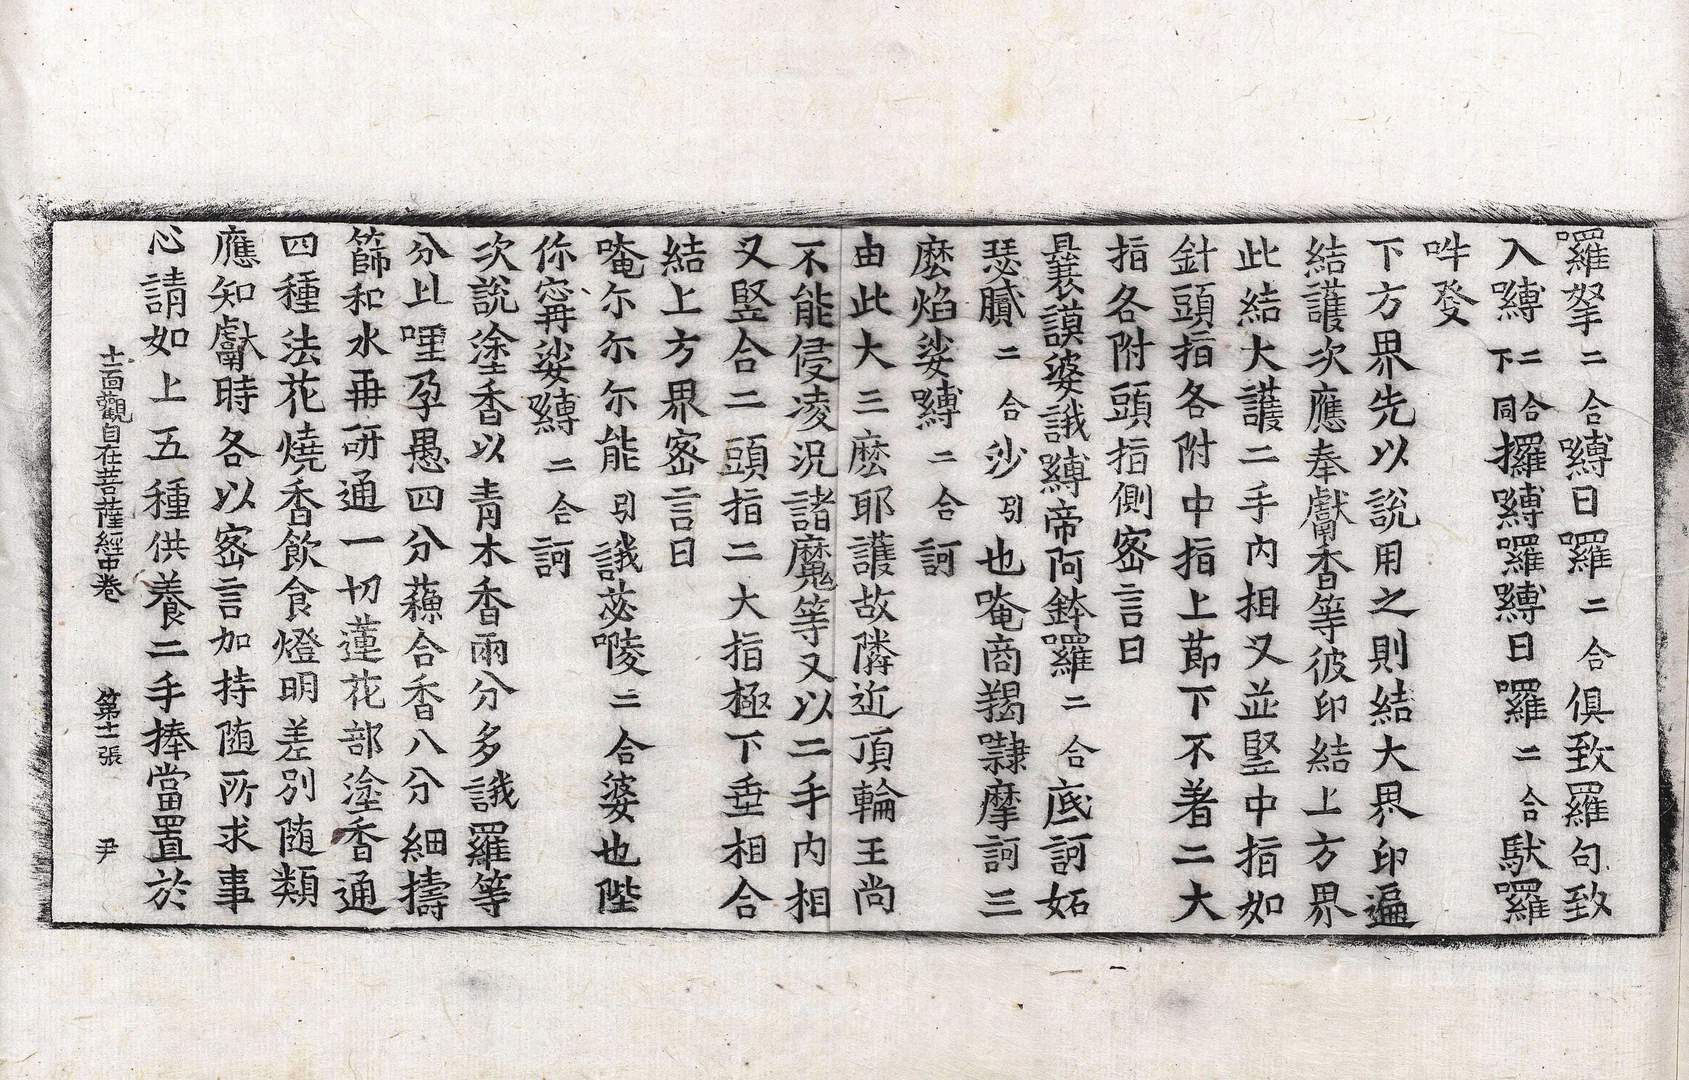 囉拏二合嚩日囉二合俱致羅句致
入嚩二合下同攞嚩囉嚩日囉二合馱囉
吽癹
下方界先以說用之則結大界印遍
結護次應奉獻香等彼印結上方界
此結大護二手內相叉並竪中指如
針頭指各附中指上節下不著二大
指各附頭指側密言曰
曩謨婆誐嚩帝阿鉢囉二合底訶妬
瑟膩二合沙引也唵商羯㘑摩訶三
麽焰娑嚩二合訶
由此大三麽耶護故隣近頂輪王尚
不能侵凌況諸魔等又以二手內相
叉竪合二頭指二大指極下垂相合
結上方界密言曰
唵尔尔尔能引誐苾㘄二合婆也陛
你寗娑嚩二合訶
次說塗香以青木香兩分多誐羅等
分比哩孕愚四分蘓合香八分細擣
篩和水再研通一切蓮花部塗香通
四種法花燒香飲食燈明差別随類
應知獻時各以密言加持随所求事
心請如上五種供養二手捧當置於
十一面觀自在菩薩經中卷 第十一張 尹